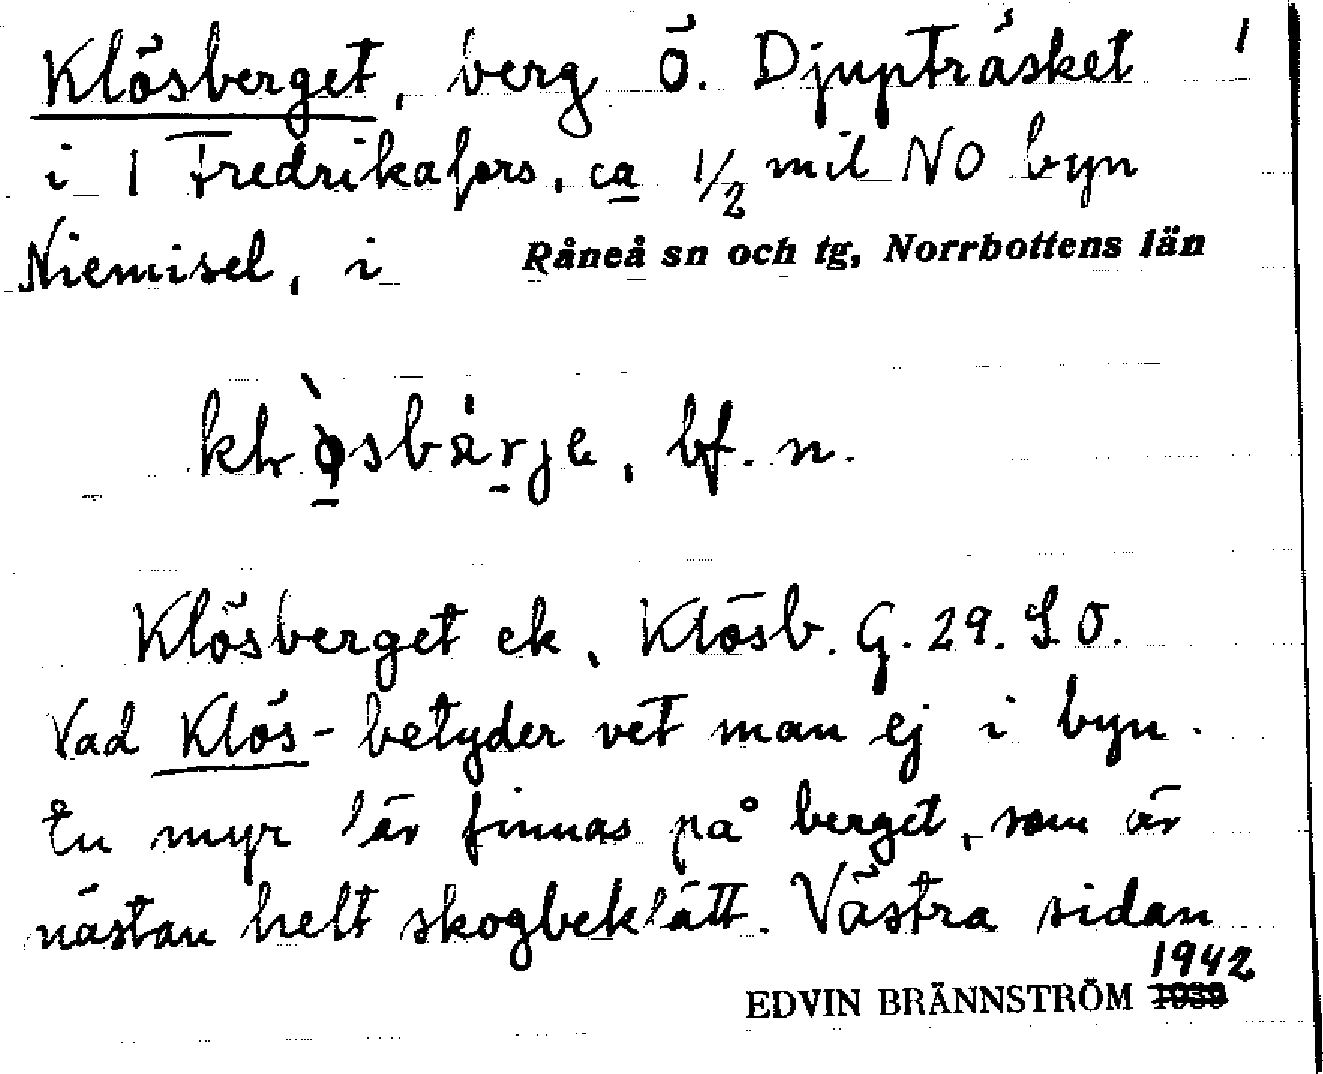 Klösberget, berg Ö. Djupträsket 1
i 1 Fredrikafors, ca 1/2 mil NO byn
Niemisel, i Råneå sn och tg, Norrbottens län
bf. n.
Klösberget ek, Klösb. G. 29. S.O.
Vad Klös- betyder vet man ej i byn.
En myr lär finnas på berget, som är
nästan helt skogbeklätt. Västra sidan
1942
EDVIN BRÄNNSTRÖM 1939